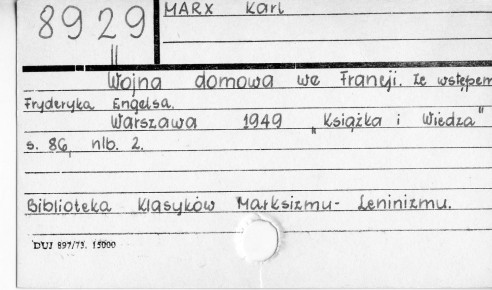 8929
MARX Karl
Wojna domowa we Francji. Ze wstępem
Fryderyka Engelsa.
Warszawa 1949 „Książka i Wiedza"
s. 86, nlb. 2.
Biblioteka Klasyków Marksizmu- Leninizmu.
DUJ 897/73. 15000